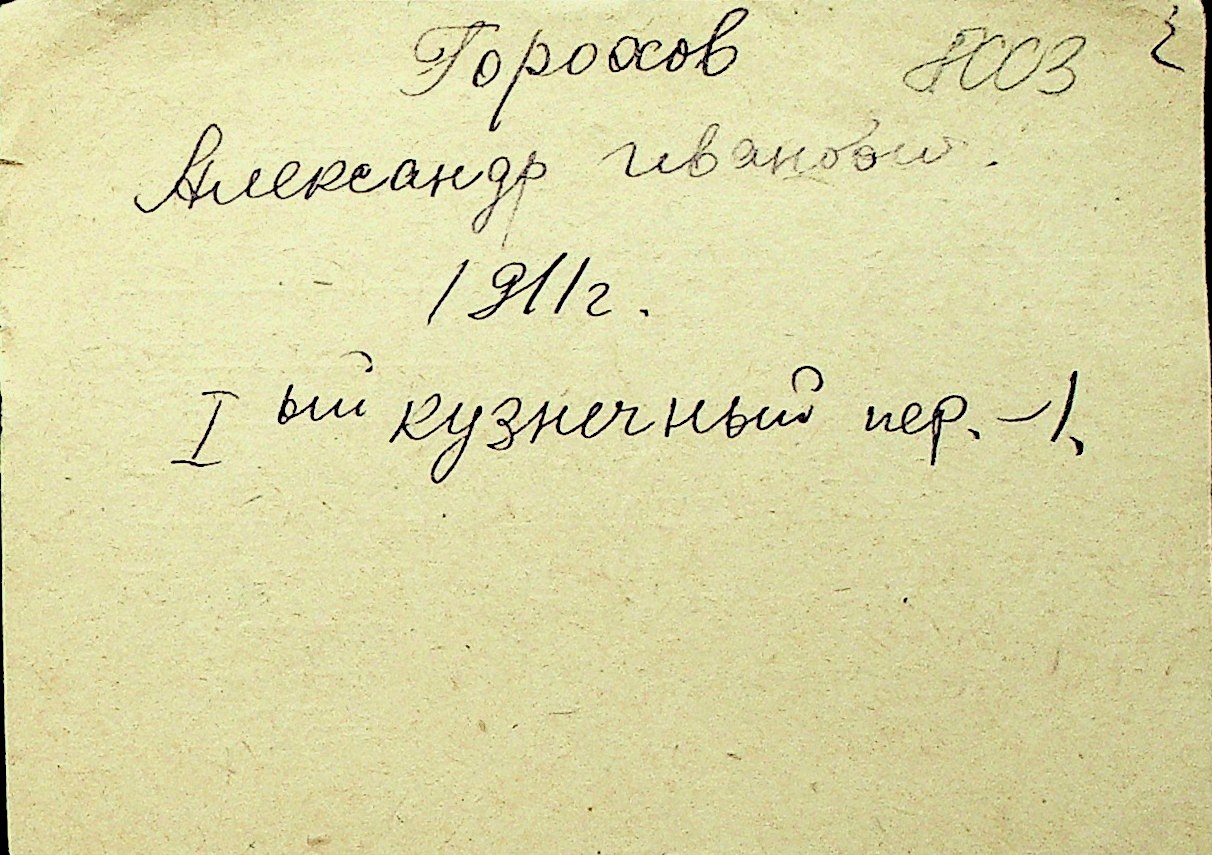 Горохов
Александр Иванович.
1911г.
I ый кузнечный пер. -1.